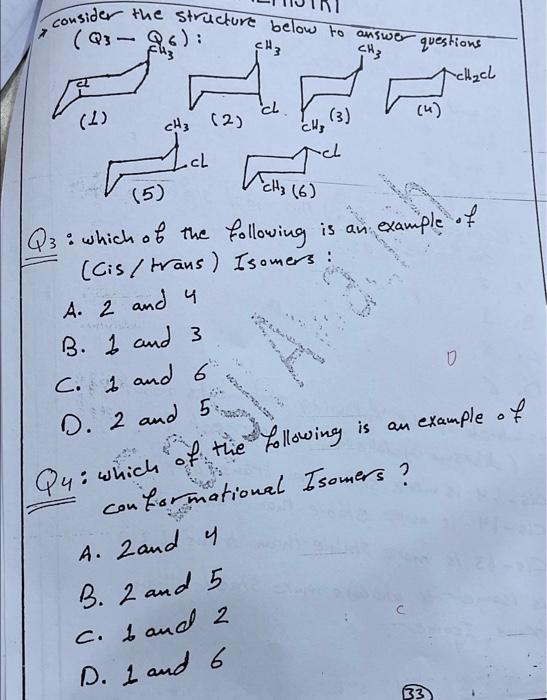 * consider the structure below to answer questions
(Q3 - Q6):
CH3 CH3 CH3
cl CH2Cl
(1) (2) cl. (3) (4)
CH3 CH3
cl cl
(5) CH3 (6)
Q3: which of the following is an example of
(Cis / trans) Isomers:
A. 2 and 4
B. 1 and 3
C. 1 and 6
D. 2 and 5
D
Q4: which of the following is an example of
conformational Isomers?
A. 2 and 4
B. 2 and 5
C. 1 and 2
D. 1 and 6
C
33